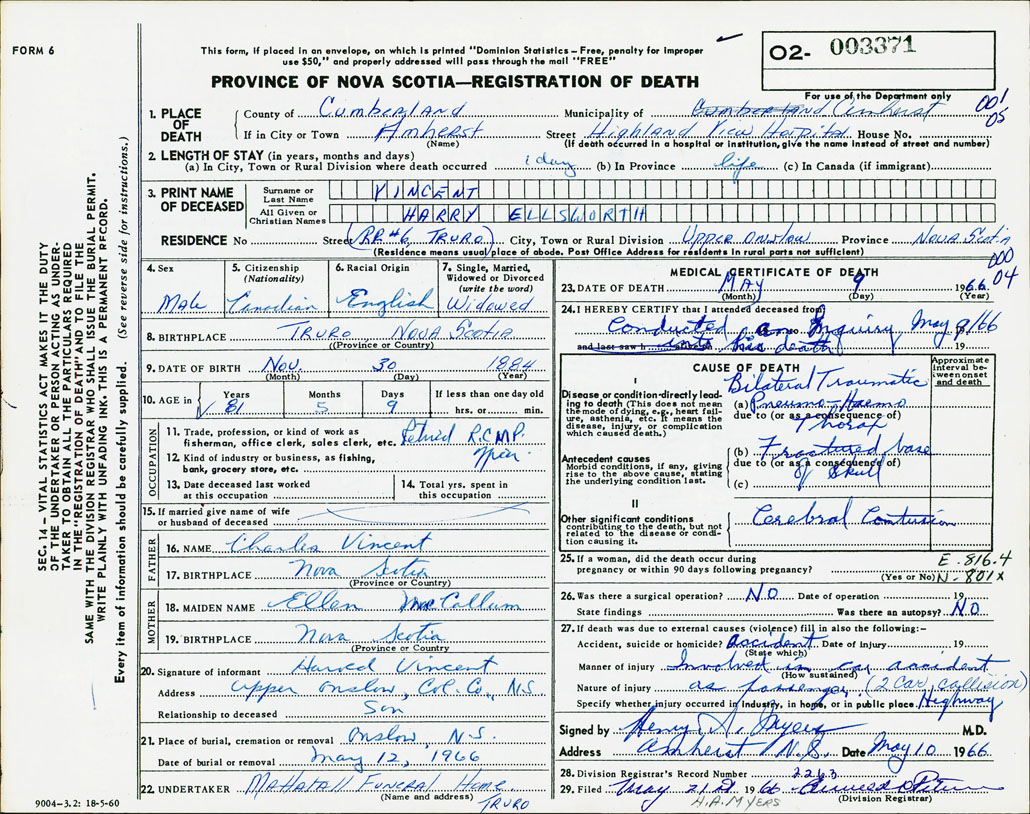 FORM 6
This form, if placed in an envelope, on which is printed "Dominion Statistics – Free, penalty for improper
use $50," and properly addressed will pass through the mail "FREE"
O2- 003371
PROVINCE OF NOVA SCOTIA—REGISTRATION OF DEATH
For use of the Department only
001
05
1. PLACE OF DEATH
County of Cumberland Municipality of Cumberland Amherst
If in City or Town Amherst Street Highland View Hospital House No.
(Name) (If death occurred in a hospital or institution, give the name instead of street and number)
2. LENGTH OF STAY (in years, months and days)
(a) In City, Town or Rural Division where death occurred 1 day (b) In Province life (c) In Canada (if immigrant)
3. PRINT NAME OF DECEASED
Surname or Last Name VINCENT
All Given or Christian Names HARRY ELLSWORTH
RESIDENCE No Street (RR #6, TRURO) City, Town or Rural Division UPPER ONSLOW Province NOVA SCOTIA
(Residence means usual place of abode. Post Office Address for residents in rural parts not sufficient)
000
04
4. Sex Male
5. Citizenship (Nationality) Canadian
6. Racial Origin English
7. Single, Married, Widowed or Divorced (write the word) Widowed
8. BIRTHPLACE TRURO NOVA SCOTIA
(Province or Country)
9. DATE OF BIRTH Nov. 30 1884
(Month) (Day) (Year)
10. AGE in Years 81 Months 5 Days 9 If less than one day old
hrs. or min.
OCCUPATION
11. Trade, profession, or kind of work as
fisherman, office clerk, sales clerk, etc. Retired R.C.M.P.
12. Kind of industry or business, as fishing,
bank, grocery store, etc.
13. Date deceased last worked
at this occupation
14. Total yrs. spent in
this occupation
15. If married give name of wife
or husband of deceased
FATHER
16. NAME Charles Vincent
17. BIRTHPLACE Nova Scotia
(Province or Country)
MOTHER
18. MAIDEN NAME Ellen MacCallum
19. BIRTHPLACE Nova Scotia
(Province or Country)
20. Signature of informant Harold Vincent
Address Upper Onslow, Col. Co., N.S.
Relationship to deceased Son
21. Place of burial, cremation or removal Onslow, N.S.
Date of burial or removal May 12, 1966
22. UNDERTAKER Funeral Home
(Name and address) TRURO
MEDICAL CERTIFICATE OF DEATH
23. DATE OF DEATH MAY 9 1966
(Month) (Day) (Year)
24. I HEREBY CERTIFY that I attended deceased from
Conducted an Inquiry May 9/66
and last saw h alive on into his death 19
CAUSE OF DEATH
Approximate interval between onset and death
I
Disease or condition directly leading to death (This does not
mean the mode of dying, e.g., heart failure, asthenia, etc. It means the
disease, injury, or complication which caused death.)
Bilateral Traumatic
(a) Pneumo-Haemo
due to (or as a consequence of)
Thorax
Antecedent causes
Morbid conditions, if any, giving
rise to the above cause, stating
the underlying condition last.
(b) Fractured base
due to (or as a consequence of)
of Skull
(c)
II
Other significant conditions
contributing to the death, but not
related to the disease or condition causing it.
Cerebral Contusion
25. If a woman, did the death occur during
pregnancy or within 90 days following pregnancy?
(Yes or No)
E.816.4
N-801X
26. Was there a surgical operation? NO Date of operation 19
State findings Was there an autopsy? NO
27. If death was due to external causes (violence) fill in also the following:–
Accident, suicide or homicide? accident Date of injury 19
(State which)
Manner of injury Involved in car accident
(How sustained)
Nature of injury as passenger. (2 car collision)
Specify whether injury occurred in Industry, in home, or in public place Highway
Signed by Henry A. Myers M.D.
Address Amherst N.S. Date May 10 1966
28. Division Registrar's Record Number 2263
29. Filed May 21 1966
(Division Registrar)
H.A. MYERS
9004-3.2: 18-5-60
SEC. 14 – VITAL STATISTICS ACT MAKES IT THE DUTY
OF THE UNDERTAKER OR PERSON ACTING AS UNDERTAKER TO OBTAIN ALL THE PARTICULARS REQUIRED
IN THE "REGISTRATION OF DEATH" AND TO FILE THE
SAME WITH THE DIVISION REGISTRAR WHO SHALL ISSUE THE BURIAL PERMIT.
WRITE PLAINLY WITH UNFADING INK. THIS IS A PERMANENT RECORD.
Every item of information should be carefully supplied. (See reverse side for instructions.)